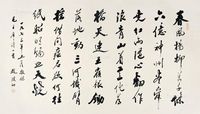 春風楊柳萬千條
六億神州盡舜堯
紅雨隨心翻作
浪青山著意化為
橋天連五嶺銀鋤
落地動三河鐵臂
搖借問瘟君欲何往
紙船明燭照天燒